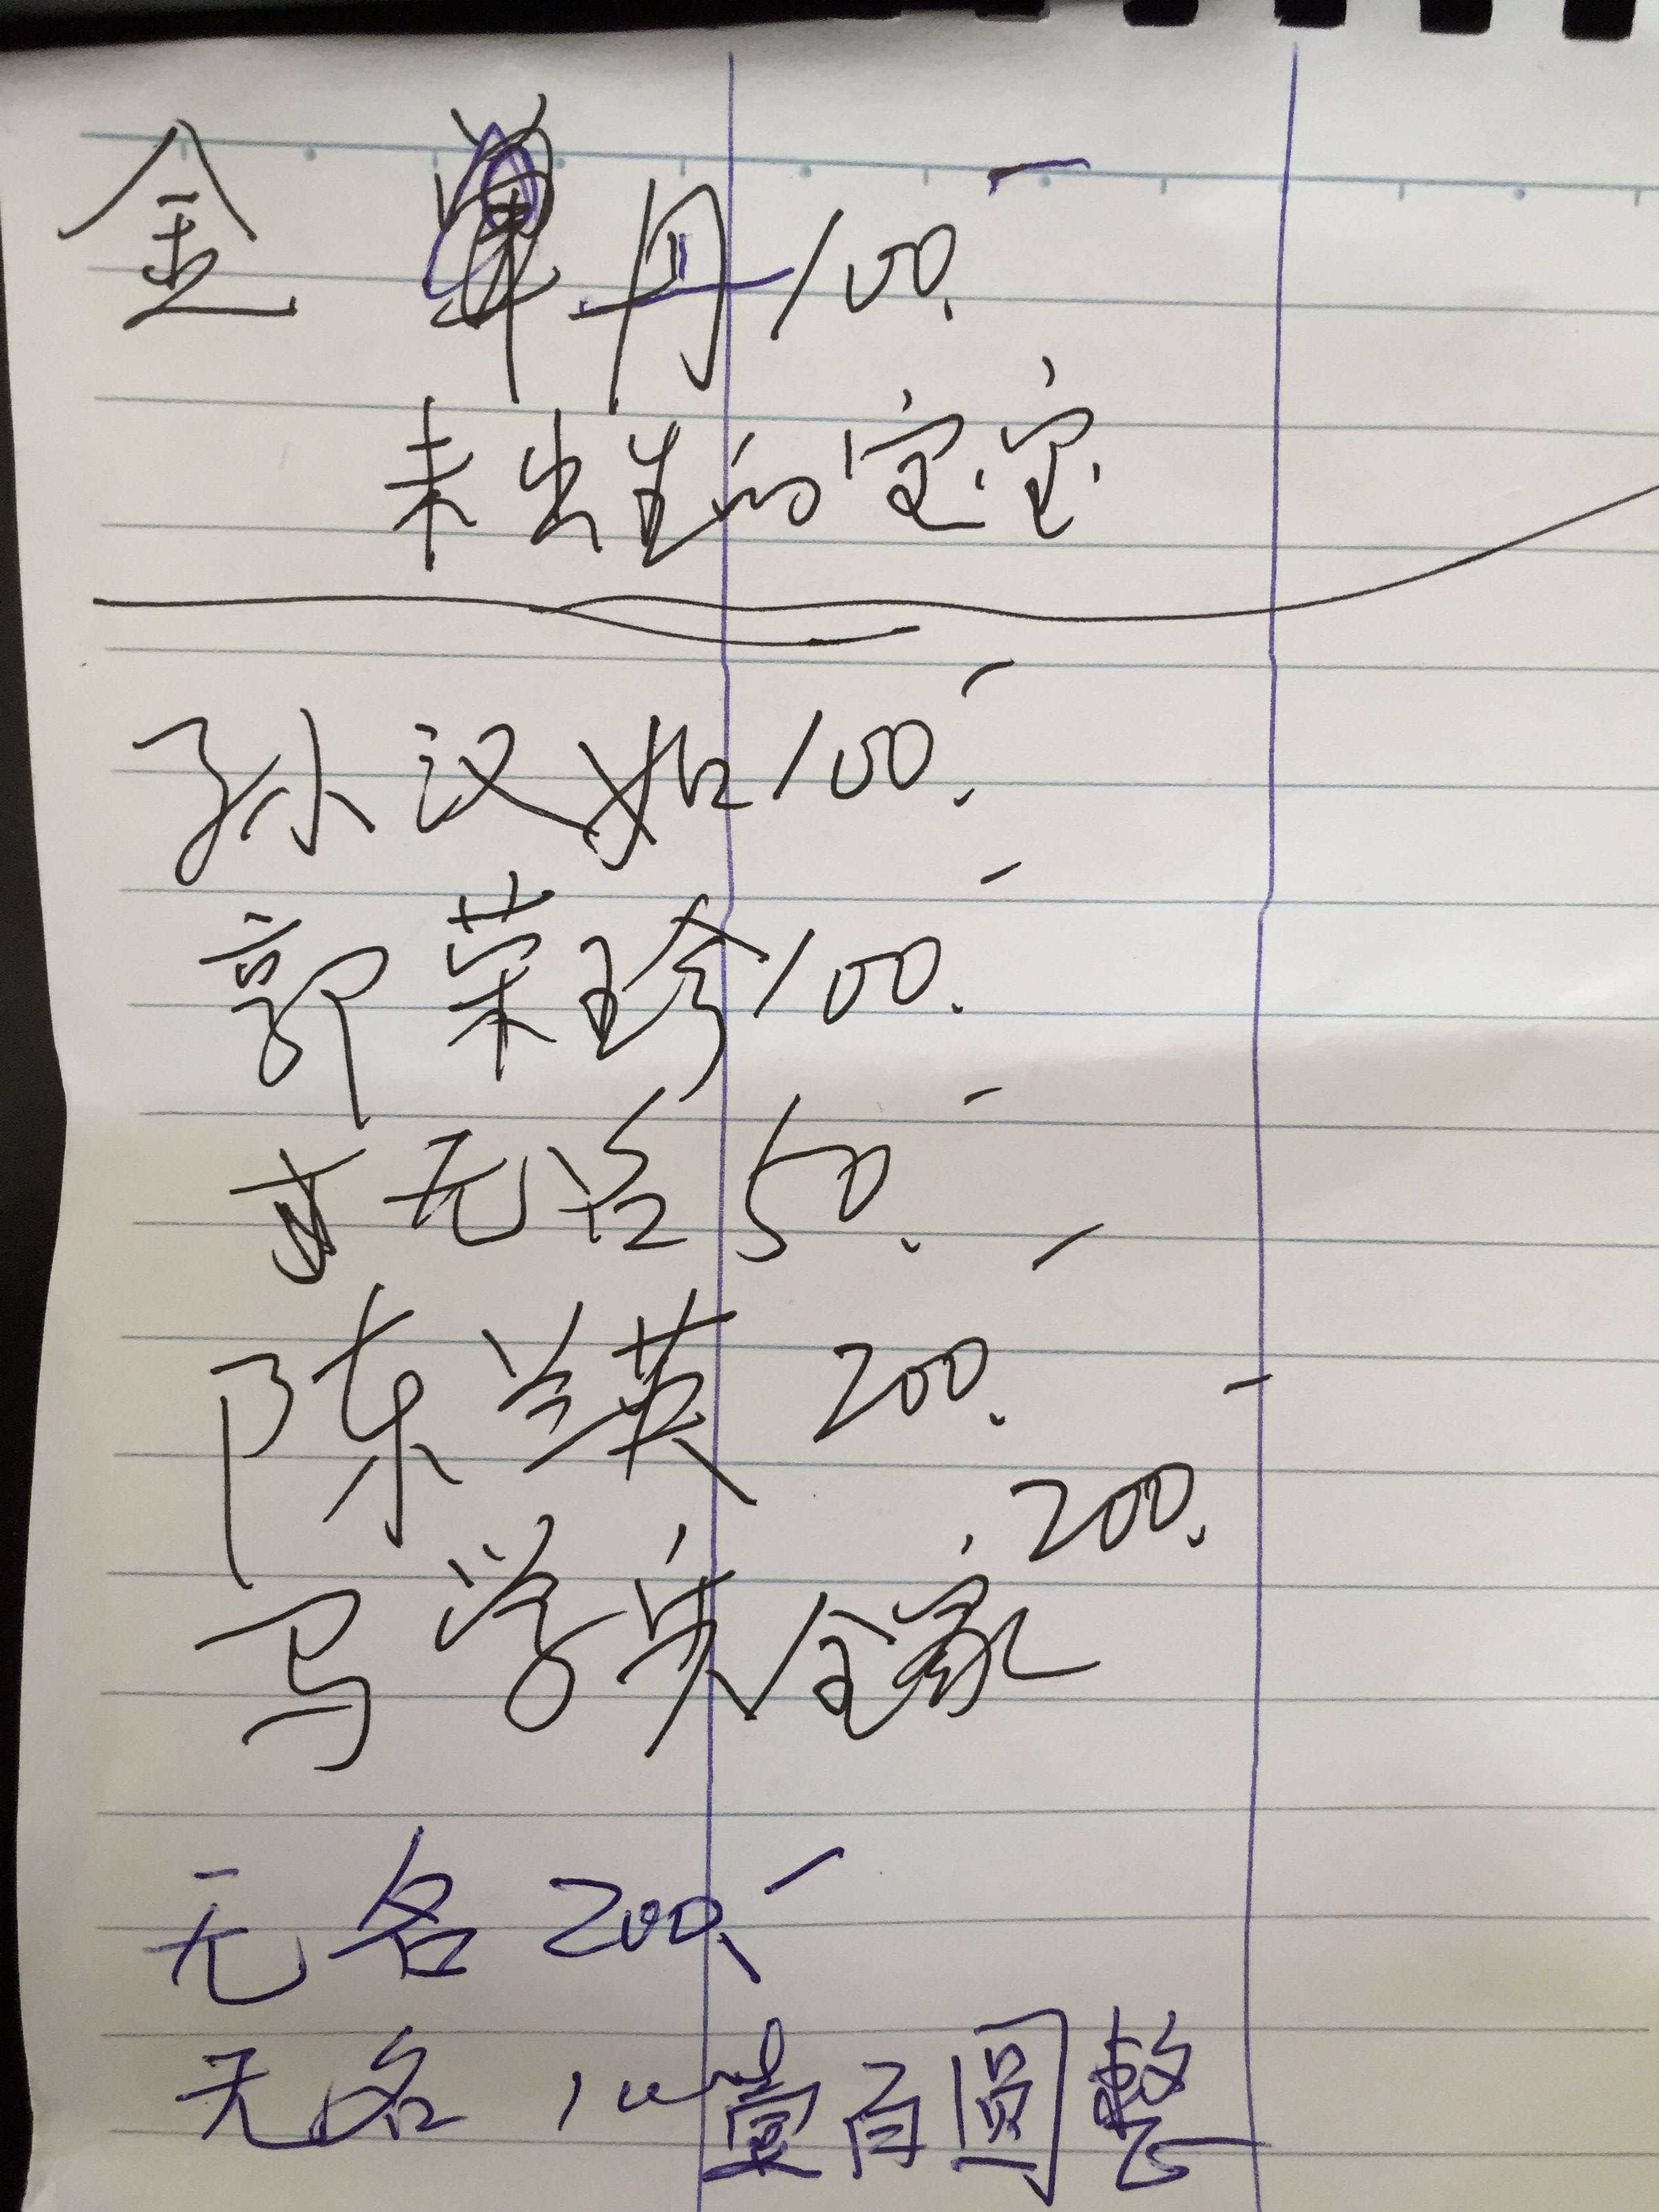 金 丹 100.
未出生的宝宝
孙汉如 100.
郭荣珍 100.
无名 50.
陈兰英 200.
200.
马学朱全家
无名 200.
无名 100 壹百圆整